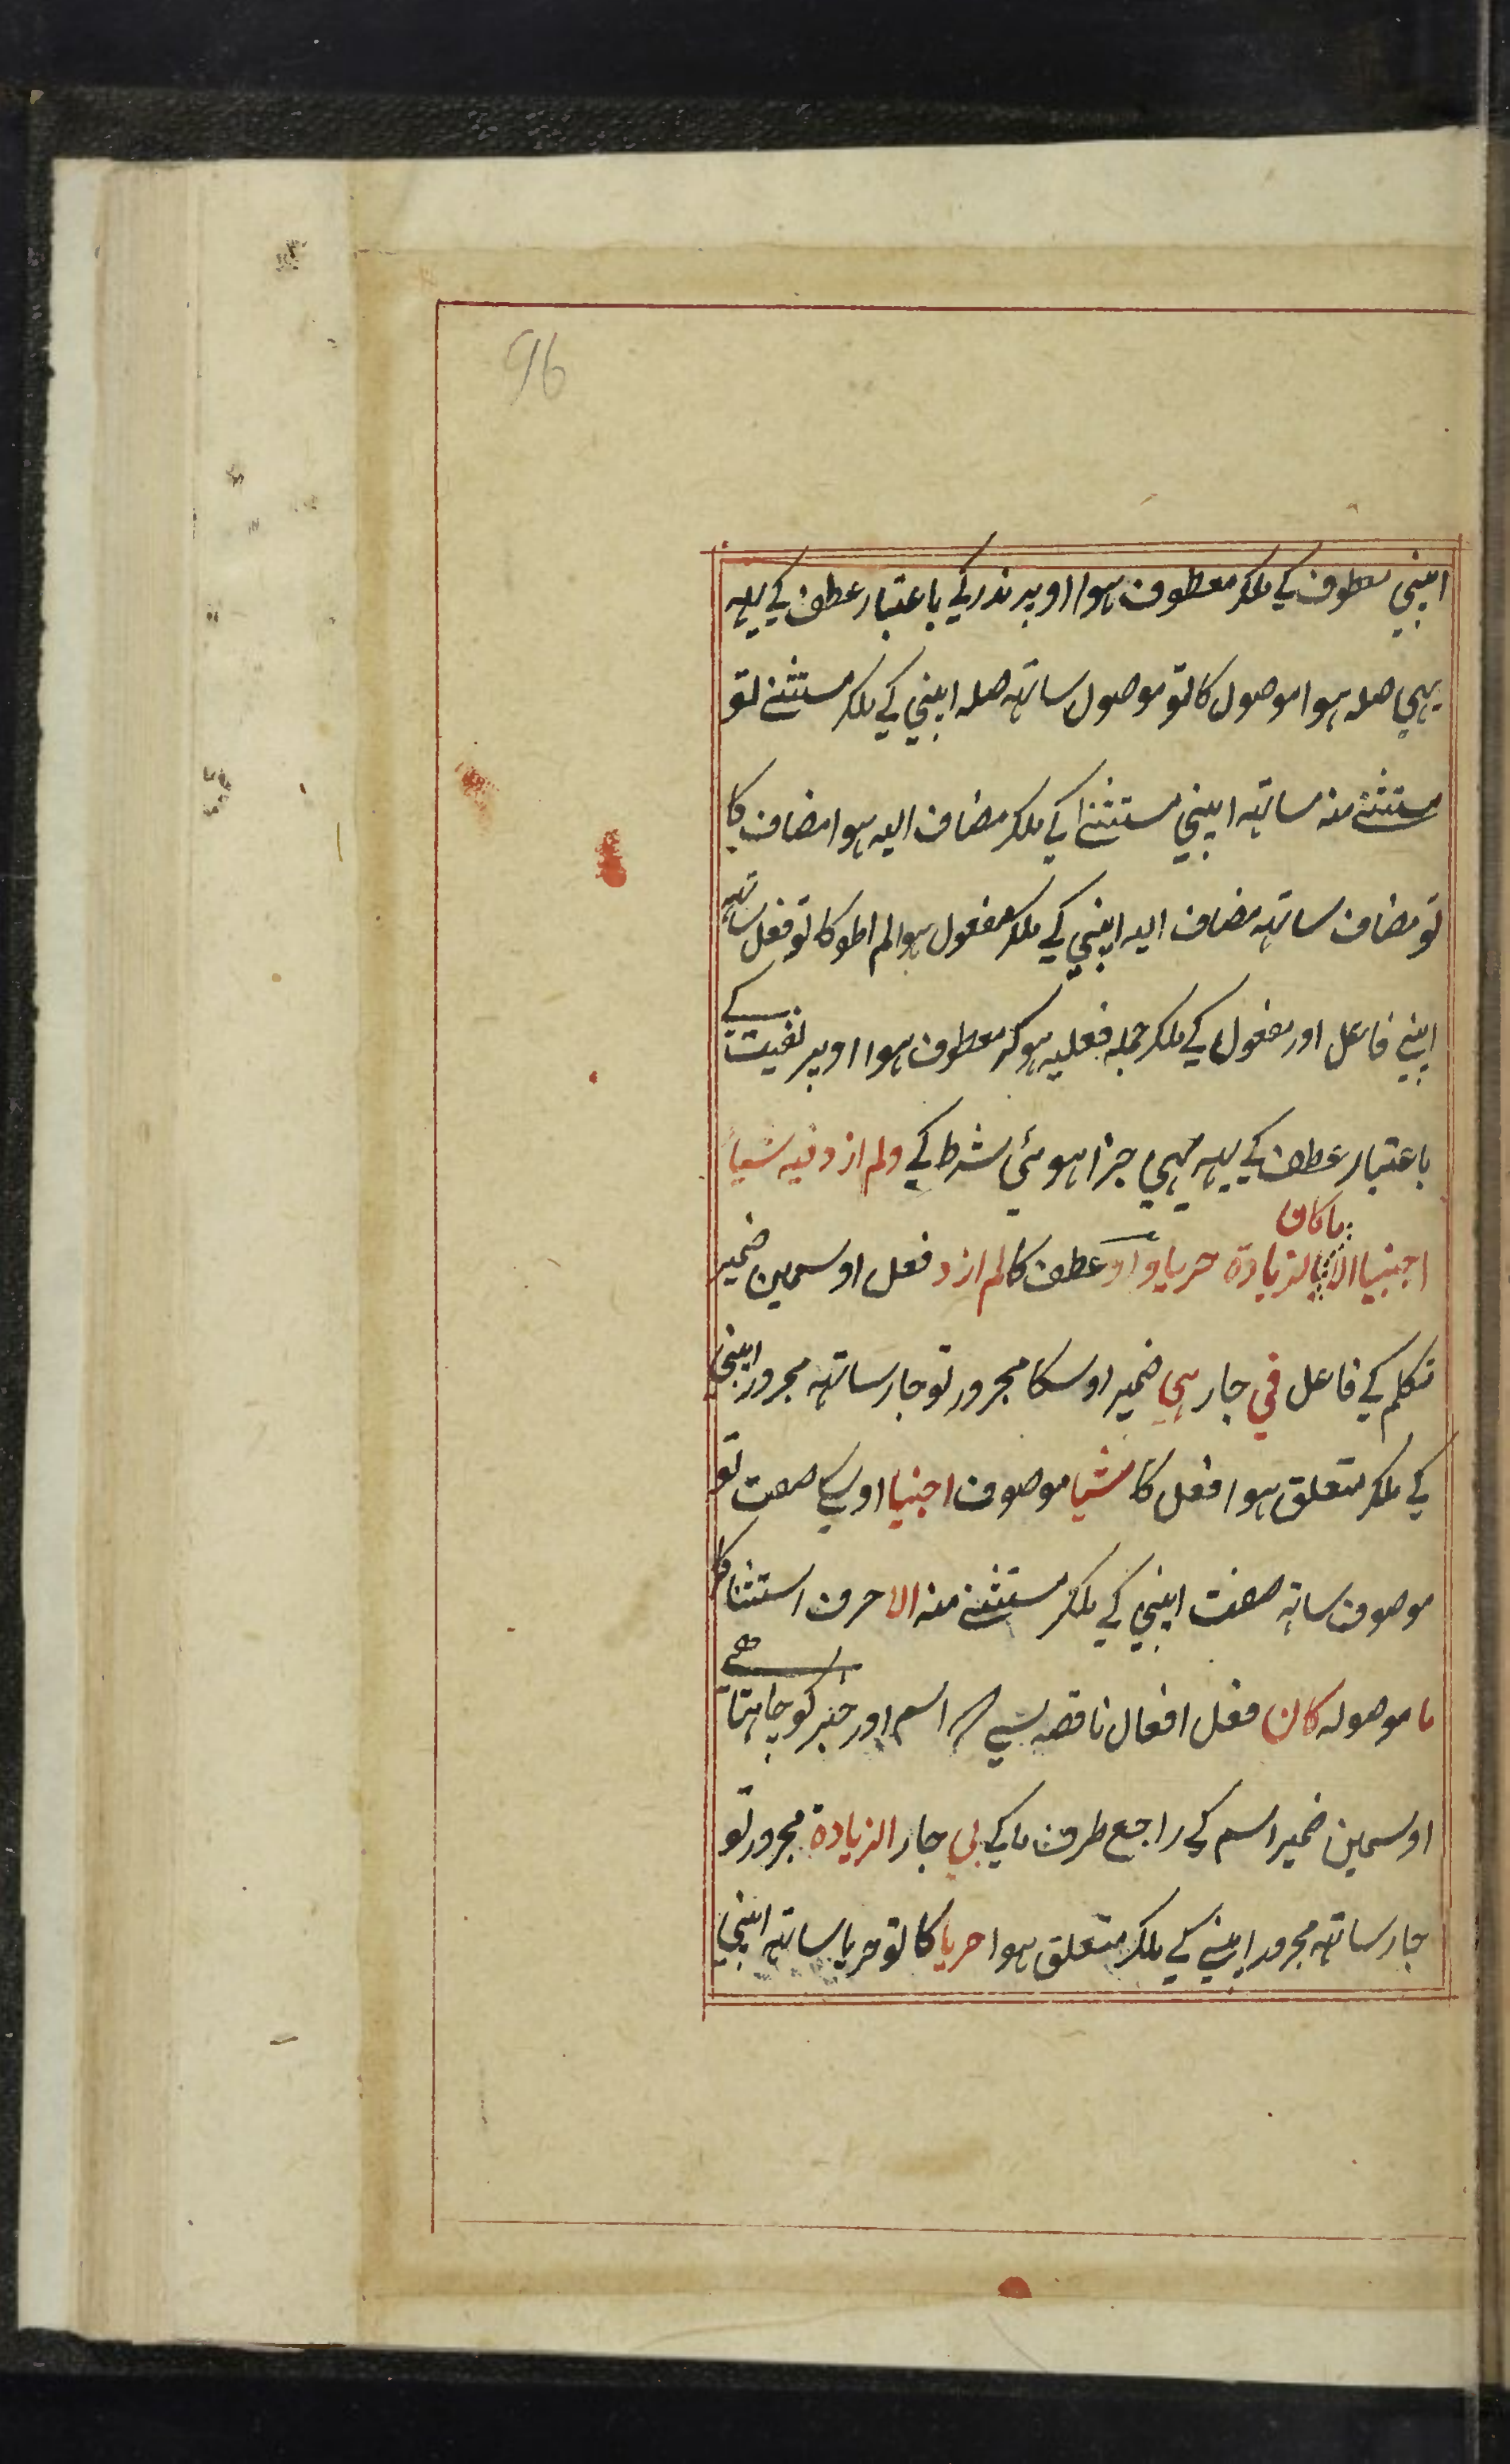 96
اپنی معطوف کی ملکر معطوف ہوا اوپر نذر کی باعتبار عطف کی یہہ
یہی صلہ ہوا موصول کا تو موصول ساتہہ صلہ اپنی کی ملکر مستثنے تو
مستثنے منہ ساتہہ اپنی مستثنے کی ملکر مضاف الیہ ہوا مضاف کا
تو مضاف ساتہہ مضاف الیہ اپنی کی ملکر مفعول ہوا لم اطو کا تو فعل ساتہہ
اپنی فاعل اور مفعول کی ملکر جملہ فعلیہ ہو کر معطوف ہوا اوپر نفیت کے
باعتبار عطف کی یہہ بہی جزا ہوئی شرط کی ولم ازد فیہ شیاً
اجنبیا الا ما کان بالزیادة حریا واو عطف کا لم ازد فعل اوسمین ضمیر
متکلم کی فاعل فی جار ہی ضمیر اوسکا مجرور تو جار ساتہہ مجرور اپنی
کی ملکر متعلق ہوا فعل کا شیا موصوف اجنبیا اوسکی صفت تو
موصوف ساتہ صفت اپنی کی ملکر مستثنے منہ الا حرف استثنا کا
ما موصولہ کان فعل افعال ناقصہ سی اسم اور خبر کو چاہتا ہے
اوسمین ضمیر اسم کی راجع طرف ما کی بی جار الزیادة مجرور تو
جار ساتہہ مجرور اپنی کی ملکر متعلق ہوا حریا کا تو حریا ساتہہ اپنی